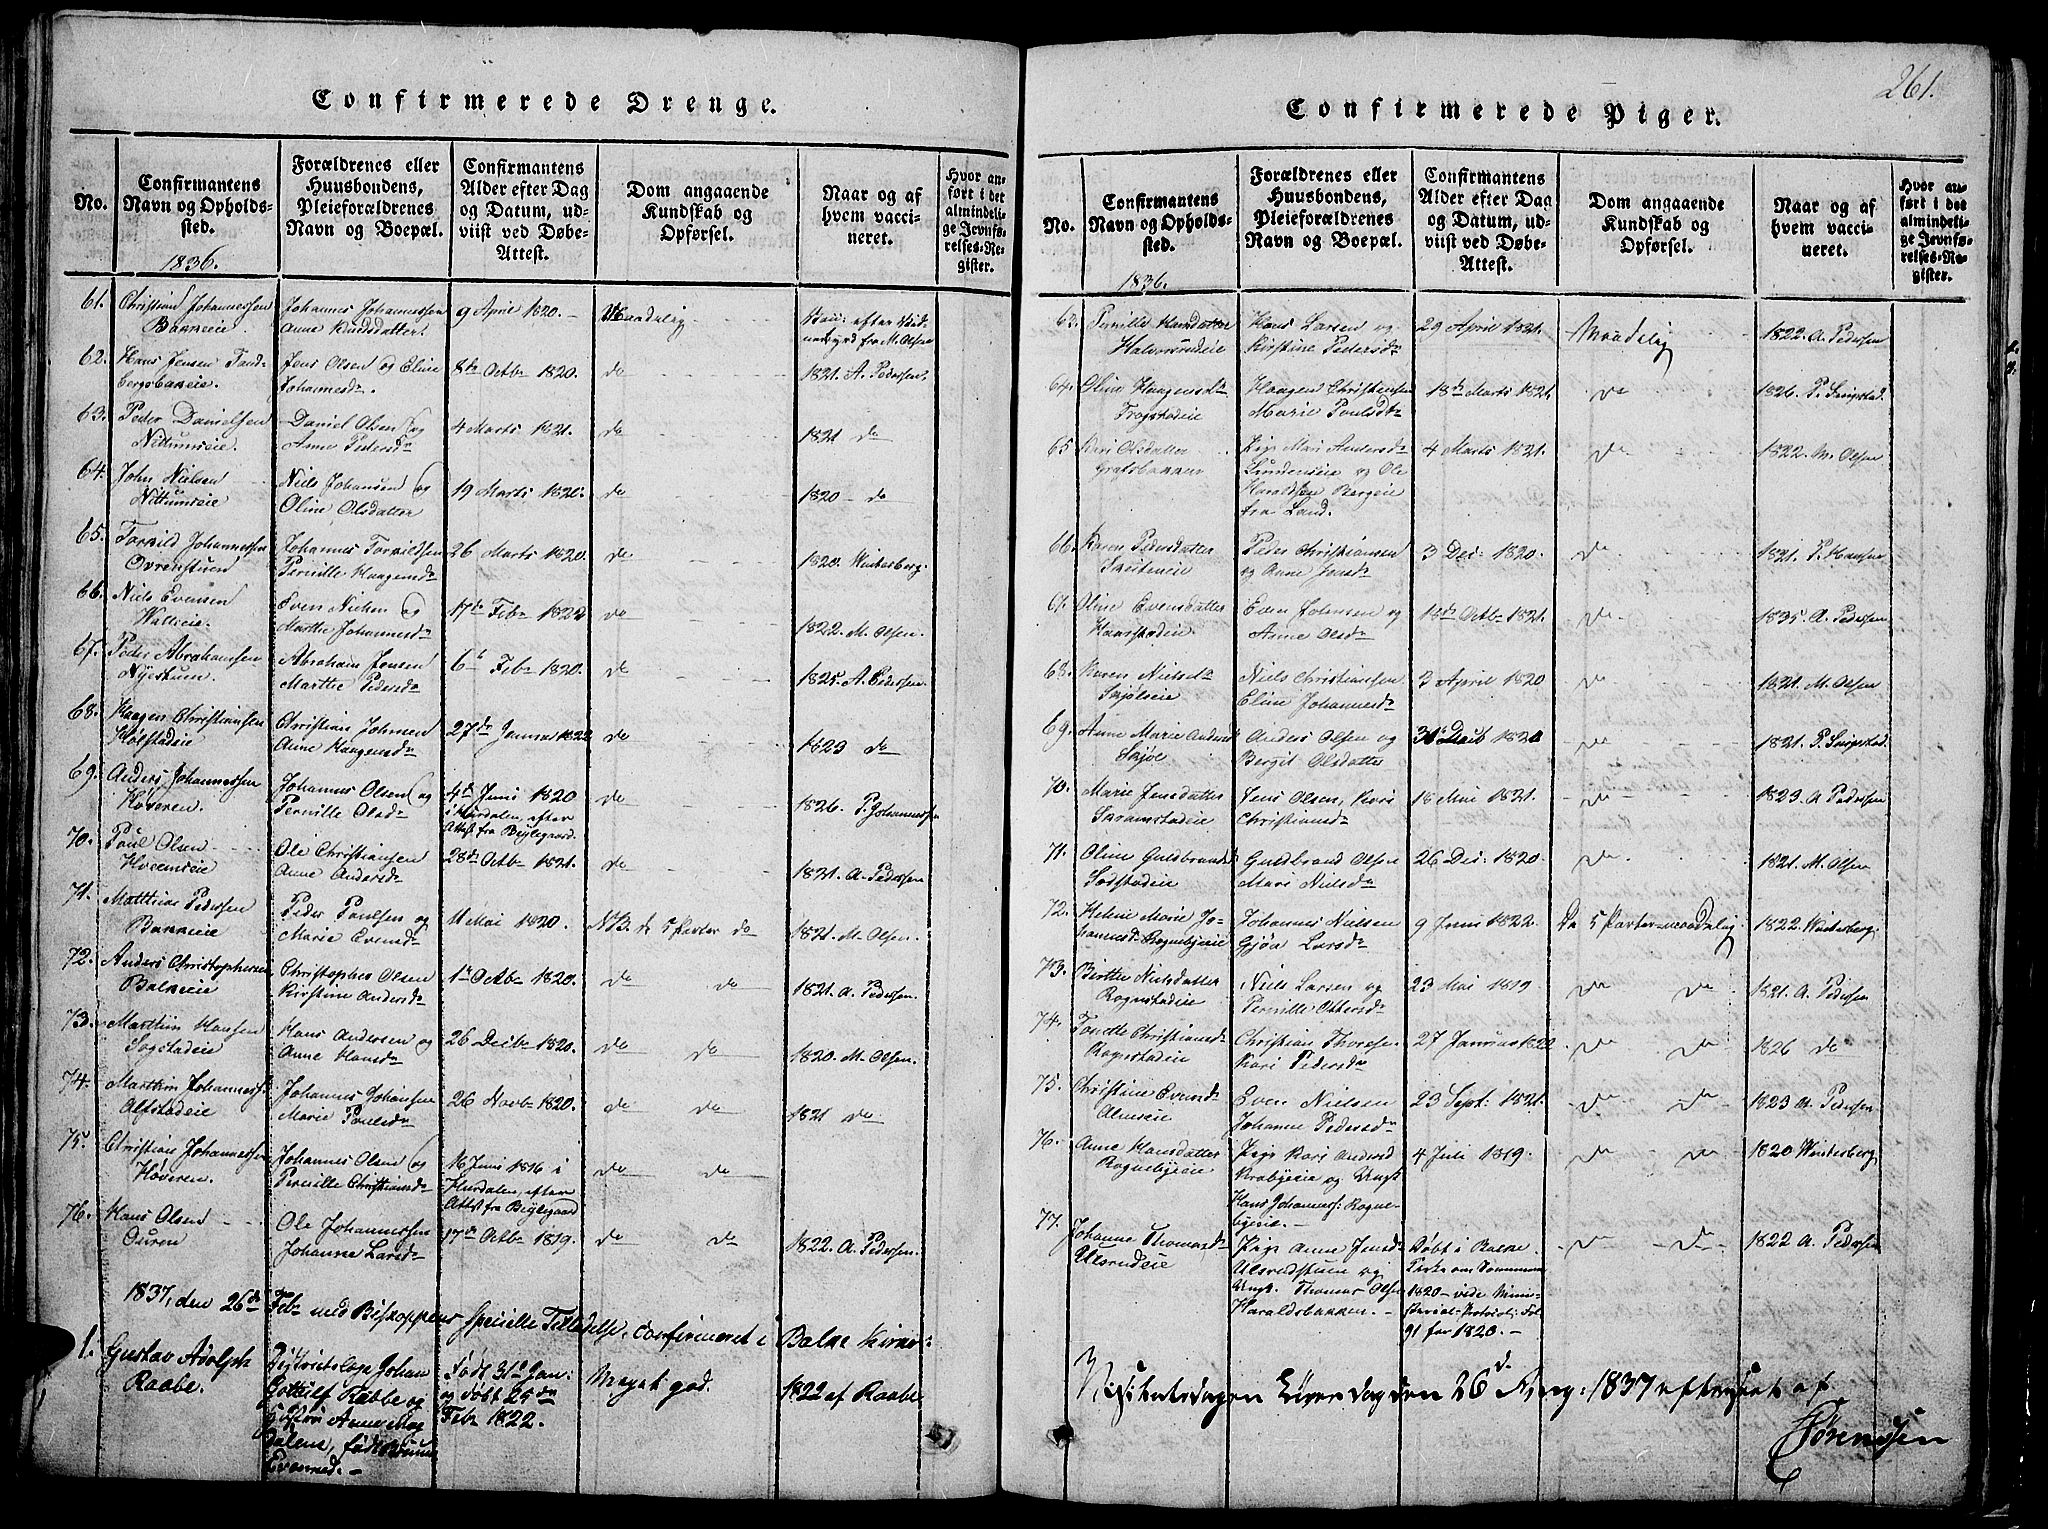 Confirmerede Drenge.
No.
Confirmantens
Navn og Opholds-
sted.
Forældrenes eller
Huusbondens,
Pleieforældrenes
Navn og Boepæl.
Confirmantens
Alder efter Dag
og Datum, ud-
viist ved Døbe-
Attest.
Dom angaaende
Kundskab og
Opførsel.
Naar og af
hvem vacci-
neret.
Hvor an-
ført i det
almindeli-
ge Jevnfø-
relses-Re-
gister.
1836.
61. Christian Johannessen
Johannes Johannessen
Anne Knudsdatter.
9 April 1820.
Maadelig
62. Hans Jensen Sand-
bergsbakeie.
Jens Olsen og Eline
Johannesd.
8de Octbr 1820. do
1821. A. Pedersen.
63. Peder Danielsen
Nittumseie.
Daniel Olsen og
Anne Pedersdr
4 Marts 1821. do
1821 do
64. John Nielsen
Nittumseie
Niels Johansen og
Oline Olsdatter
19 Marts 1820. do
1820 - do
65. Torkild Johannessen
Johannes Torkildsen
Pernille Haagensdr
26 Marts 1820. do
1820. Winterberg.
66. Niels Evensen
Walleie.
Even Nielsen og
Marthe Johannesdr
17de Febr 1822 do
1822. M. Olsen.
67. Peder Abrahamsen
Nyestuen.
Abraham Jensen
Marthe Pedersdr
6te Febr 1820. do
1825. A. Pedersen.
68. Haagen Christiansen
Kolstadeie
Christian Johnsen
Anne Haagensdr
27de Januar 1822 do
1823 do
69. Anders Johannessen
Høveren.
Johannes Olsen og
Pernille Olsdr
4de Juni 1820
i Hurdalen, efter
Attest fra Bejlegaard. do
1826. P. Johannessen
70. Poul Olsen
Hveemseie
Ole Christiansen
Anne Andersdr
28de Octbr 1821. do
1821. A. Pedersen
71. Matthias Pedersen
Bakkeie
Peder Poulsen og
Marie Evensdr
11 Mai 1820. NB. do 5 Parter do
1821. M. Olsen.
72. Anders Christophersen
Balkeie
Christopher Olsen
Kirstine Andersdr
1te Octbr 1820. do do
1821. A. Pedersen.
73. Marthin Hansen
Sogstadeie
Hans Andersen og
Anne Hansdr
26 Decbr 1820. do do
1820. M. Olsen.
74. Marthin Johanness:
Alfstadeie
Johannes Johansen
Marie Poulsdr
26 Novbr 1820. do do
1821 do
75. Christian Johannessen
Høveren.
Johannes Olsen og
Pernille Christiansdr
16 Juni 1816 i
Hurdalen, efter
Attest fra Bejlegaard do do
76. Hans Olsen
Ouren
Ole Johannessen
Johanne Larsdr
17de Octbr 1819. do do
1822. A. Pedersen.
1837, den 26de Febr med Biskoppens specielle Tilladelse, confirmeret i Balke Kirke:
1. Gustav Adolph
Raabe.
Districtslæge Johan
Gottilf Raabe og
Hustru Anne Mag-
dalene, født
Født 31te Jan:
og døbt 25de
Febr 1822.
Meget god.
1822 af Raabe
261.
Confirmerede Piger.
No.
Confirmantens
Navn og Opholds-
sted.
Forældrenes eller
Huusbondens,
Pleieforældrenes
Navn og Boepæl.
Confirmantens
Alder efter Dag
og Datum, ud-
viist ved Døbe-
Attest.
Dom angaaende
Kundskab og
Opførsel.
Naar og af
hvem vacci-
neret.
Hvor an-
ført i det
almindeli-
ge Jevnfø-
relses-Re-
gister.
1836.
63. Pernille Hansdatter
Halvorsrudeie
Hans Larsen og
Kirstine Pedersdr
29 April 1821. Maadelig
1822. A. Pedersen
64. Oline Haagensdr
Trogstadeie
Haagen Christiansen
Marie Poulsdr
18de Marts 1821 do
1826. P. Seigstad.
65 Kari Olsdatter
Pige Mari Andersdr
Lundenseie og Ole
Haraldsen Bergeie
fra Land.
4 Marts 1821. do
1822. M. Olsen
66. Karen Pedersdatter
Peder Christiansen
og Anne Jensdr
3 Dec: 1820. do
1821. P. Hansen
67. Oline Evensdatter
Haarstadeie
Even Johnsen og
Anne Olsdr
14de Octbr 1821. do
1835. A. Pedersen
68. Karen Nielsdr
Skjølseie
Niels Christiansen
Eline Johannesdr
3 April 1820 do
1821. M. Olsen
69. Anne Marie Andersdr
Skjøl
Anders Olsen og
Bergit Olsdatter
31te Decb 1820 do
1821. P. Seigstad.
70. Marie Jensdatter
Jens Olsen, Kari
Christiansdr
18 Mai 1821. do
1823 A. Pedersen
71. Oline Guldbrandsdr
Guldbrand Olsen
Mari Nielsdr
26 Dec: 1820. do
1821. M. Olsen
72. Helene Marie Jo-
hannesdr Rognebyeie
Johannes Nielsen
Gjøa Larsdr
9 Juni 1822. Do 5 Parter - maadelig.
1822. Winterberg
73. Berthe Nielsdatter
Rognstadeie
Niels Larsen og
Pernille Ottersdr
23 Mai 1819 do do
1821. A. Pedersen
74. Tonette Christiansdr
Rognstadeie
Christian Thoresen
Kari Pedersdr
27 Januar 1822 do do
1826 do
75. Christine Evensdr
Almseie
Even Nielsen
Johanne Pedersdr
23 Sept: 1821. do do
1823 A. Pedersen
76. Anne Hansdatter
Rognebyeie
Pige Kari Andersd
Krabyeie og Ungk
Hans Johanness: Rogne-
byeie.
4 Juli 1819. do do
1820 Winterberg
77. Johanne Thomasdr
Ulsrudeie
Pige Anne Jensdr
Ulsrudstuen og
Ungk. Thomas Olsen
Haraldsbakken. -
Døbt i Balke
Kirke om Sommeren
1820 - vide Mini-
sterial-Protocol: Fol
91 for 1820. -
do do
1822 A. Pedersen
Visitatsdagen Løverdag den 26de Aug: 1837 efterseet af
Sørenssen